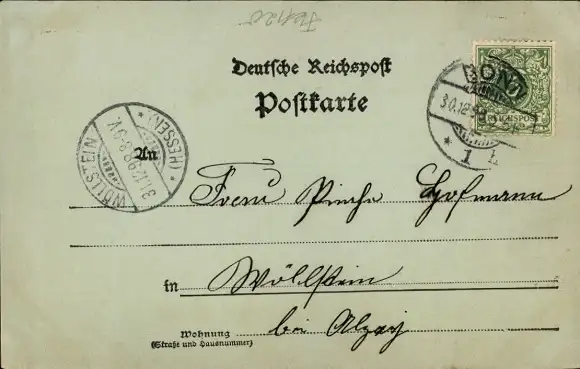 Deutsche Reichspost
Postkarte
BONN
30.12.98
* 1
REICHSPOST
WÖLLSTEIN
31.12.98.8-9.V.
* (HESSEN) *
An
Hofmann
in Wöllstein
bei Alzey
Wohnung
(Straße und Hausnummer)